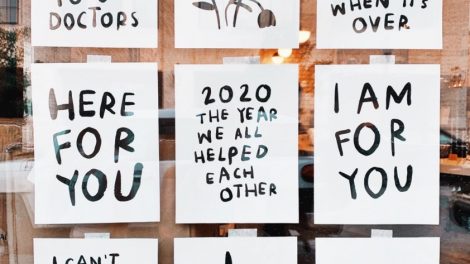 DOCTORS
WHEN IT'S
OVER.
HERE
FOR
YOU
2020
THE YEAR
WE ALL
HELPED
EACH
OTHER
I AM
FOR
YOU
I CAN'T